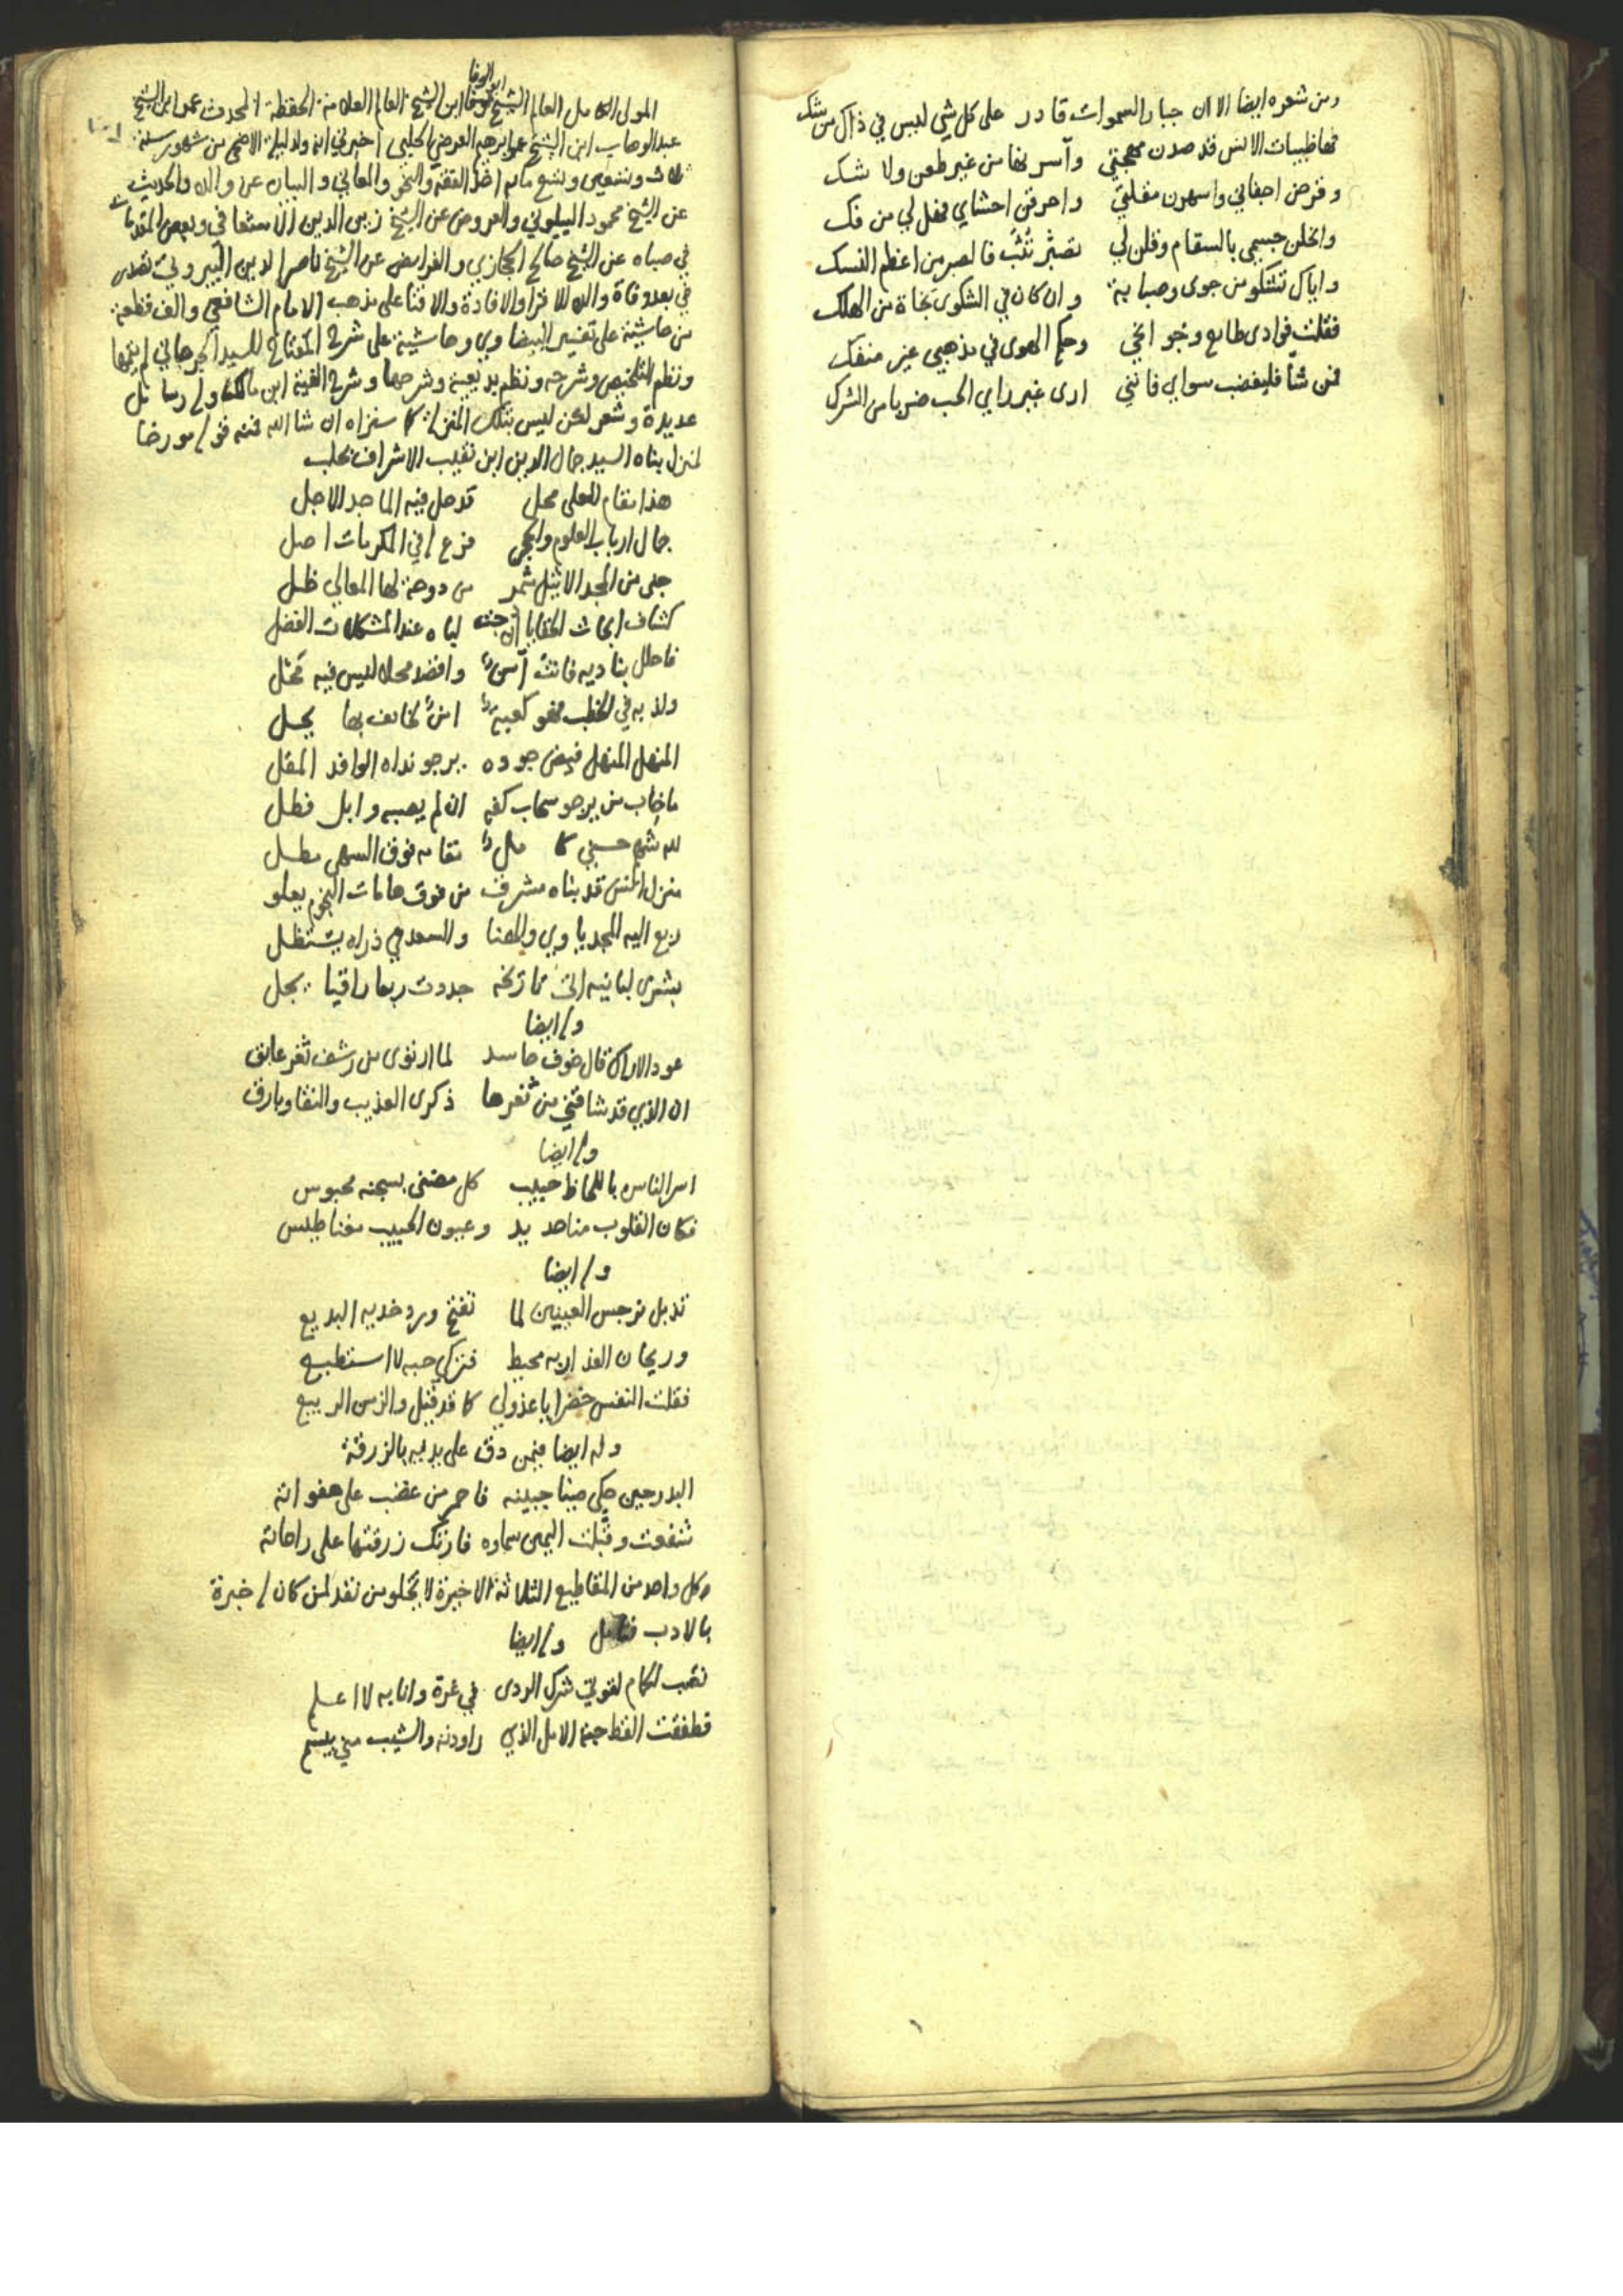 ومن شعره ايضا الا ان جبار السموات قادر على كل شي ليس في ذاك من شك
فها ظبيات الانس قد صدن مهجتي وآسرنها من غير طعن ولا شك
وقرحن اجفاني واسهرن مقلتي واحرقن احشاي فهل لي من فك
وانحلن جسمي بالسقام وقلن لي تصبر تثب فالصبر من اعظم النسك
واياك تشكو من جوى وصبابة وان كان في الشكوى نجاة من الهلك
فقلت فوادى طايع وجوانحي وحكم الهوى في مذهبي غير منفك
فمن شا فليغضب سواي فانني ارى غير راي الحب ضربا من الشرك
المولى الكامل العالم الشيخ ابو الوفا ابن الشيخ العالم العلامة الحفظة المحدث عمر ابن الشيخ
عبد الوهاب ابن الشيخ ابراهيم العرضي الحلبي اخبرني انه ولد ليلة الاضحى من شهور سنة
ثلاث وتسعين وتسع مايه اخذ الفقه والنحو والمعاني والبيان عن والده والحديث
عن الشيخ محمود البيلوني والعروض عن الشيخ زين الدين الاشعافي وبعض المقدمات
في صباه عن الشيخ صالح الحجازي والفرايض عن الشيخ ناصر الدين البيروني تصدر
في بعد وفاة والده للاقرا والافادة والافتا على مذهب الامام الشافعي والف قطعة
من حاشية على تفسير البيضاوي وحاشية على شرح المفتاح للسيد الجرجاني لم يتمها
ونظم التلخيص وشرحه ونظم بديعية وشرحها وشرح الفية ابن مالك وله رسايل
عديدة وشعر لكن ليس بتلك المنزلة كما ستراه ان شا الله فمنه قوله مورخا
لمنزل بناه السيد جمال الدين ابن نقيب الاشراف بحلب
هذا مقام للعلى محل قد حل فيه الماجد الاجل
جمال ارباب العلوم والحجى فرع له في المكرمات اصل
جنى من المجد الاثيل مثمر من دوحة لها المعالي ظل
كشاف ابحاث الخفايا ان لياه عند المشكلات الفضل
فاحلل بناديه فانت آمن واقصد محلا ليس فيه محل
ولذ به في الخطب فهو كعبة امن لخايف بها يحل
المنهل المنهل فيض جوده يرجو نداه الوافد المقل
ما خاب من يرجو سحاب كفه ان لم يصبه وابل فطل
لله شهم حسيني كامل مقامه فوق السهى مطل
منزل انس قد بناه مشرف من فوق هامات النجوم يعلو
ربع اليه المجد ياوي والهنا والسعد في ذراه يستظل
بشرى لبانيه اتت تاريخه جددت ربعا راقيا يجل
وله ايضا
عود الاراك قال خوف حاسد لما ارتوى من رشف ثغر عابق
ان الذي قد شاقني من ثغرها ذكرى العذيب والنقا وبارق
وله ايضا
اسر الناس باللحاظ حبيب كل مضنى بسجنه محبوس
فكان القلوب منا حديد وعيون الحبيب مغناطيس
وله ايضا
تذبل نرجس العينين لما تفتح ورد خديه البديع
وريحان العذار به محيط فتركي حبه لا استطيع
فقلت النفس خضرا يا عذولي كما قد قيل والزمن الربيع
وله ايضا فيمن دق على يديه بالزرقة
البدر حين حكى ضيا جبينه فاحمر من غضب على هفواته
شغفت وقبلت اليمين سماوه فازتك زرقتها على راحاته
وكل واحد من المقاطيع الثلاثة الاخيرة لا يخلو من نقد لمن كان له خبرة
بالادب فتامل وله ايضا
نصب الحمام لقوتي شرك الردى في غرة وانا به لا اعلم
فطفقت القط حبة الامل الذي راودته والشيب مني يبسم